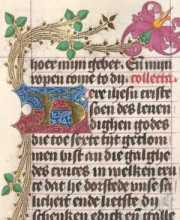 hoer mijn gebet. En mijn
ropen come to dy. collecta
Here ihesu criste
soen des leuen
dighen godes
die toe sexte tijt gecom
men bist an die galghe
des cruces in welken cru
ce dat he dorstede vnse sa
licheit ende